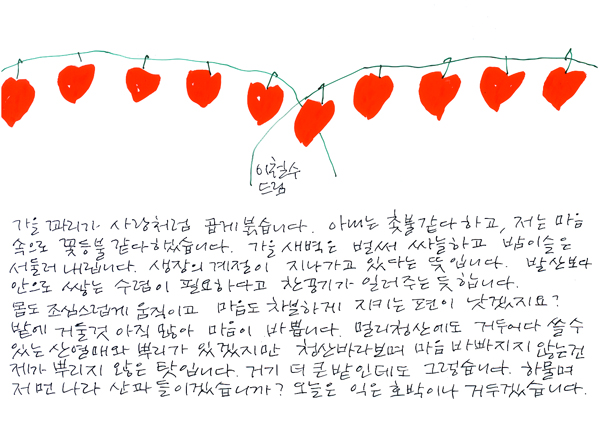 이철수
드림
가을 꽈리가 사랑처럼 곱게 붉습니다. 아내는 촛불같다 하고, 저는 마음
속으로 꽃등불 같다 했습니다. 가을 새벽은 벌써 싸늘하고 밤이슬은
서둘러 내립니다. 생장의 계절이 지나가고 있다는 뜻입니다. 발산보다
안으로 쌓는 수렴이 필요하다고 찬공기가 일러주는 듯 합니다.
몸도 조심스럽게 움직이고 마음도 차분하게 지키는 편이 낫겠지요?
밭에 거둘것 아직 많아 마음이 바쁩니다. 멀리 청산에도 거두어다 쓸수
있는 산열매와 뿌리가 있겠지만 청산바라보며 마음 바빠지지 않는건
제가 뿌리지 않은 탓입니다. 거기 더 큰 밭인데도 그렇습니다. 하물며
저 먼 나라 산과 들이겠습니까? 오늘은 익은 호박이나 거두겠습니다.